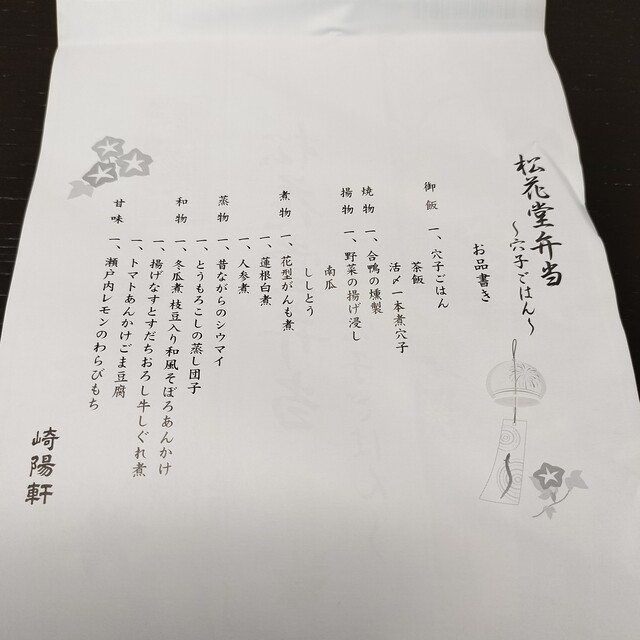 松花堂弁当
～穴子ごはん～
お品書き
御飯 一、穴子ごはん
茶飯
活〆一本煮穴子
焼物 一、合鴨の燻製
揚物 一、野菜の揚げ浸し
南瓜
ししとう
煮物 一、花型がんも煮
一、蓮根白煮
一、人参煮
蒸物 一、昔ながらのシウマイ
一、とうもろこしの蒸し団子
和物 一、冬瓜煮枝豆入り和風そぼろあんかけ
一、揚げなすとすだちおろし牛しぐれ煮
一、トマトあんかけごま豆腐
甘味 一、瀬戸内レモンのわらびもち
崎陽軒